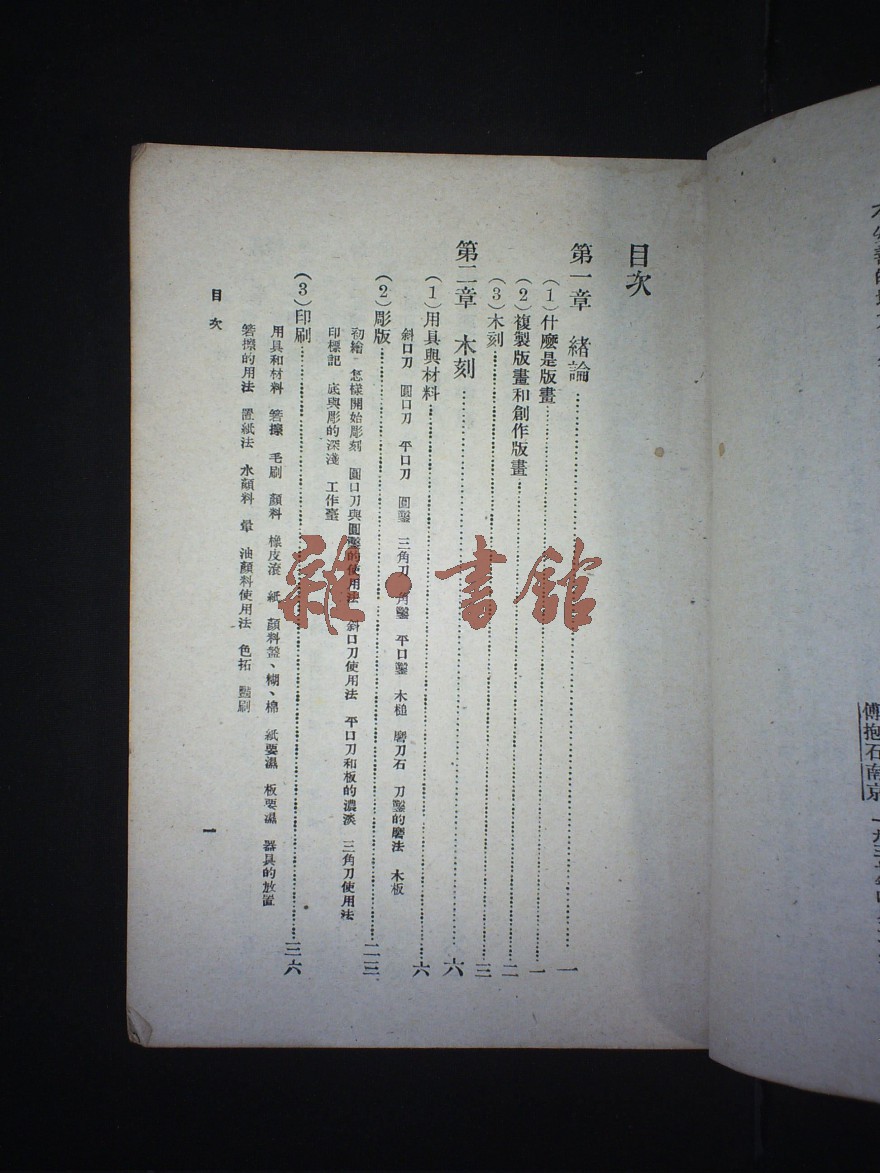 目次
第一章　緒論……一
（1）什麽是版畫……一
（2）複製版畫和創作版畫……二
（3）木刻……三
第二章　木刻……六
（1）用具與材料……六
斜口刀　圓口刀　平口刀　圓鑿　三角刀　角鑿　平口鑿　木槌　磨刀石　刀鑿的磨法　木板
（2）彫版……二三
初繪　怎樣開始彫刻　圓口刀與圓鑿的使用法　斜口刀使用法　平口刀和板的濃淡　三角刀使用法
印標記　底與彫的深淺　工作臺
（3）印刷……三六
用具和材料　箬擦　毛刷　顏料　橡皮滾　紙　顏料盤、糊、棉　紙要濕　板要濕　器具的放置
箬擦的用法　置紙法　水顏料　暈　油顏料使用法　色拓　刷
目次
一
雜·書館
傅抱石南京